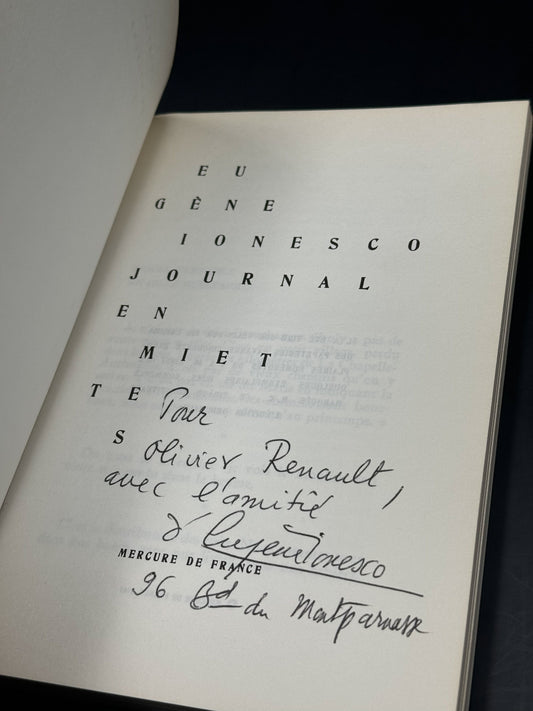 EU
GÈNE
IONESCO
JOURNAL
EN
MIET
TE
S
Pour
Olivier Renault,
avec l'amitié
d'Eugène Ionesco
MERCURE DE FRANCE
96 Bd du Montparnasse